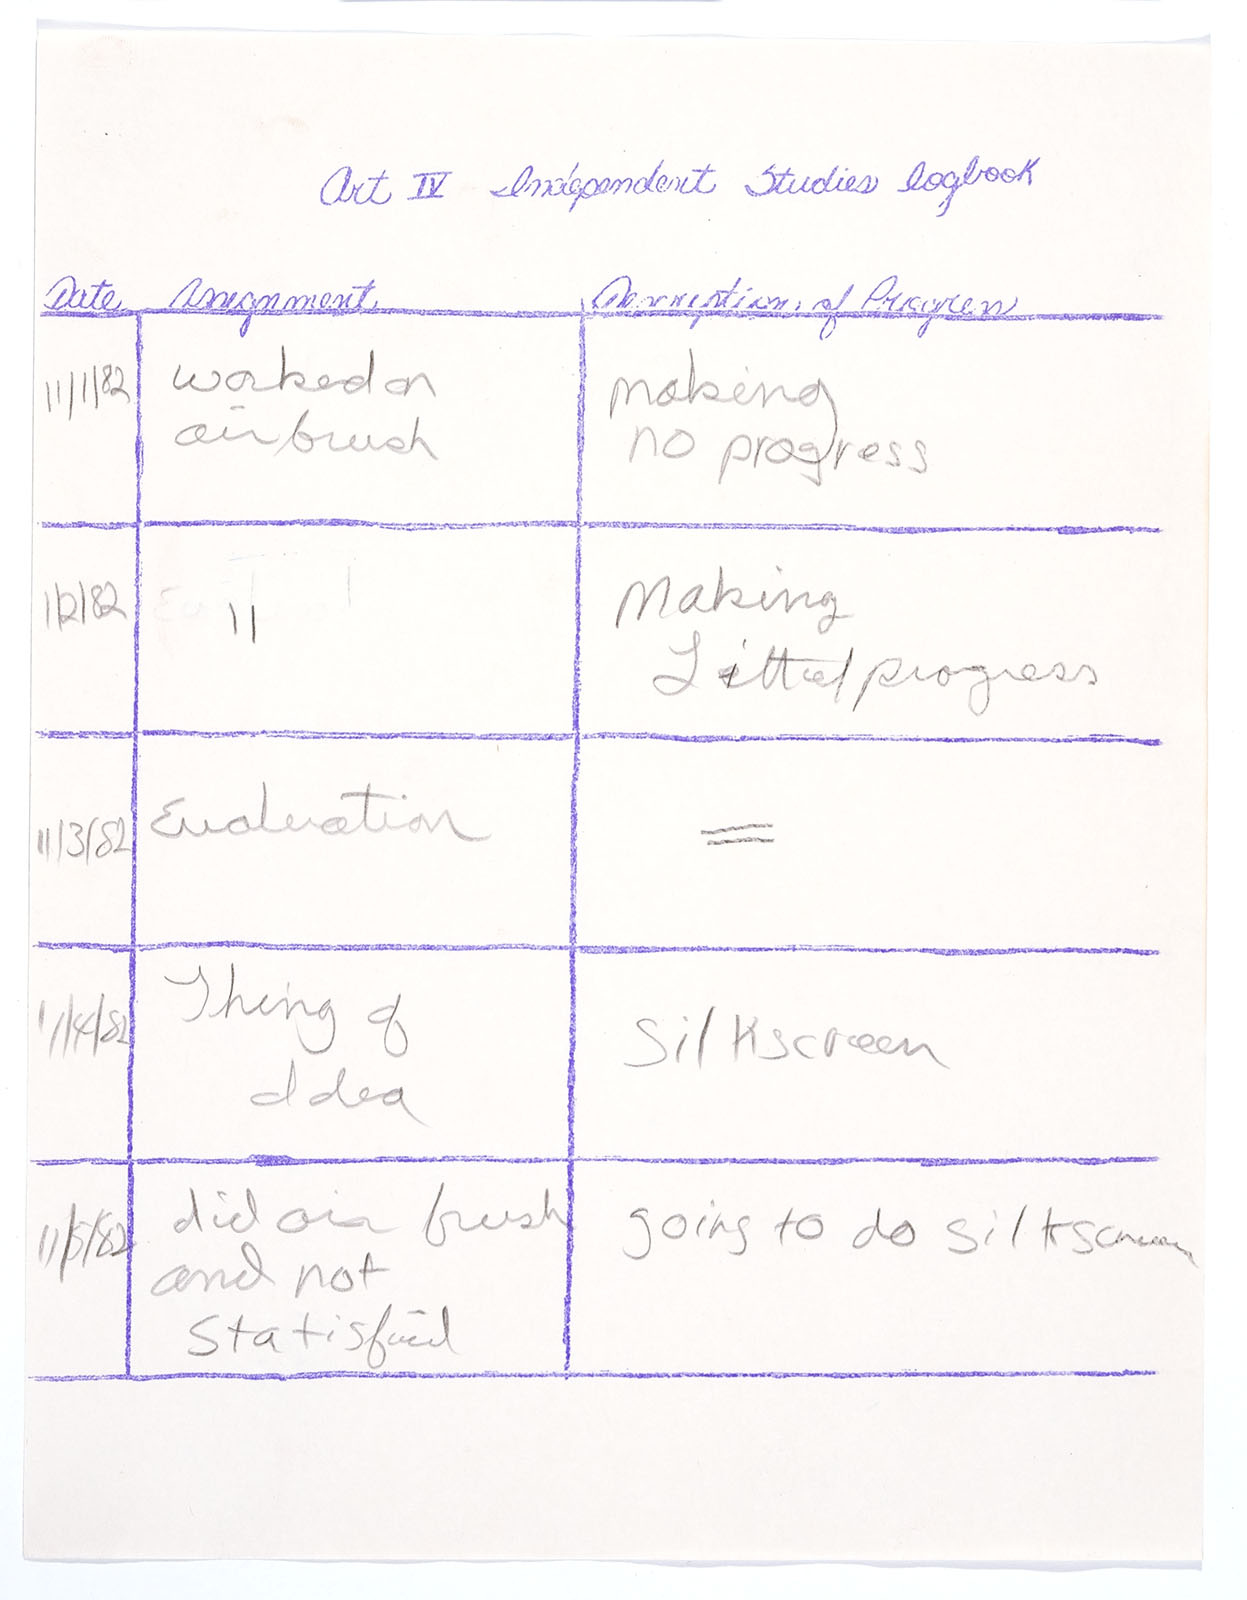 Art IV Independent Studies logbook
Date Assignment Description of Progress
11/1/82 worked on making
airbrush no progress
1/2/82 11 Making
Littel progress
11/3/82 Evaluation =
11/4/82 Thing of silkscreen
Idea
11/5/82 did air brush going to do silkscreen
and not
Statisfied